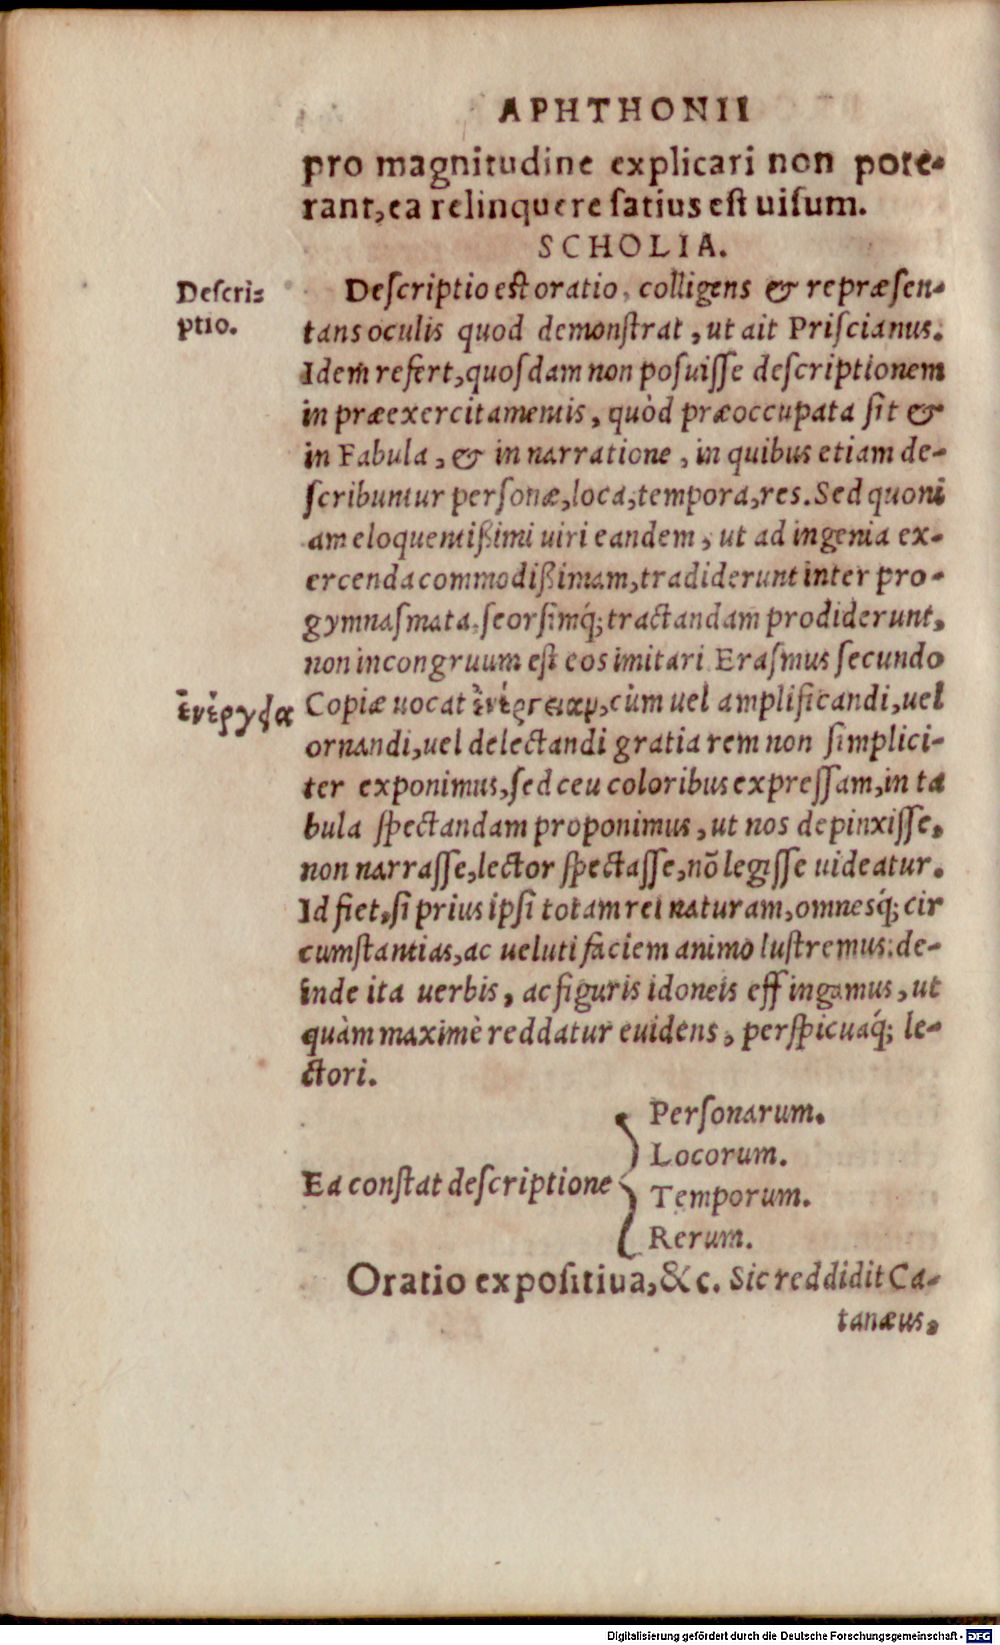 APHTHONII
pro magnitudine explicari non pote-
rant, ea relinquere satius est uisum.
SCHOLIA.
Descri-
ptio.
Descriptio est oratio, colligens & repræsen-
tans oculis quod demonstrat, ut ait Priscianus.
Idem refert, quosdam non posuisse descriptionem
in præexercitamentis, quòd præoccupata sit &
in Fabula, & in narratione, in quibus etiam de-
scribuntur personæ, loca, tempora, res. Sed quoni
am eloquentißimi uiri eandem, ut ad ingenia ex-
ercenda commodißimam, tradiderunt inter pro-
gymnasmata, seorsimq́; tractandam prodiderunt,
non incongruum est eos imitari. Erasmus secundo
ἐνέργεια
Copiæ uocat ἐνέργειαν, cùm uel amplificandi, uel
ornandi, uel delectandi gratia rem non simplici-
ter exponimus, sed ceu coloribus expressam, in ta
bula spectandam proponimus, ut nos depinxisse,
non narrasse, lector spectasse, nõ legisse uideatur.
Id fiet, si prius ipsi totam rei naturam, omnesq́; cir
cumstantias, ac ueluti faciem animo lustremus: de-
inde ita uerbis, ac figuris idoneis effingamus, ut
quàm maximè reddatur euidens, perspicuaq́; le-
ctori.
Ea constat descriptione
Personarum.
Locorum.
Temporum.
Rerum.
Oratio expositiua, &c. Sic reddidit Ca-
tanæus,
Digitalisierung gefördert durch die Deutsche Forschungsgemeinschaft - DFG